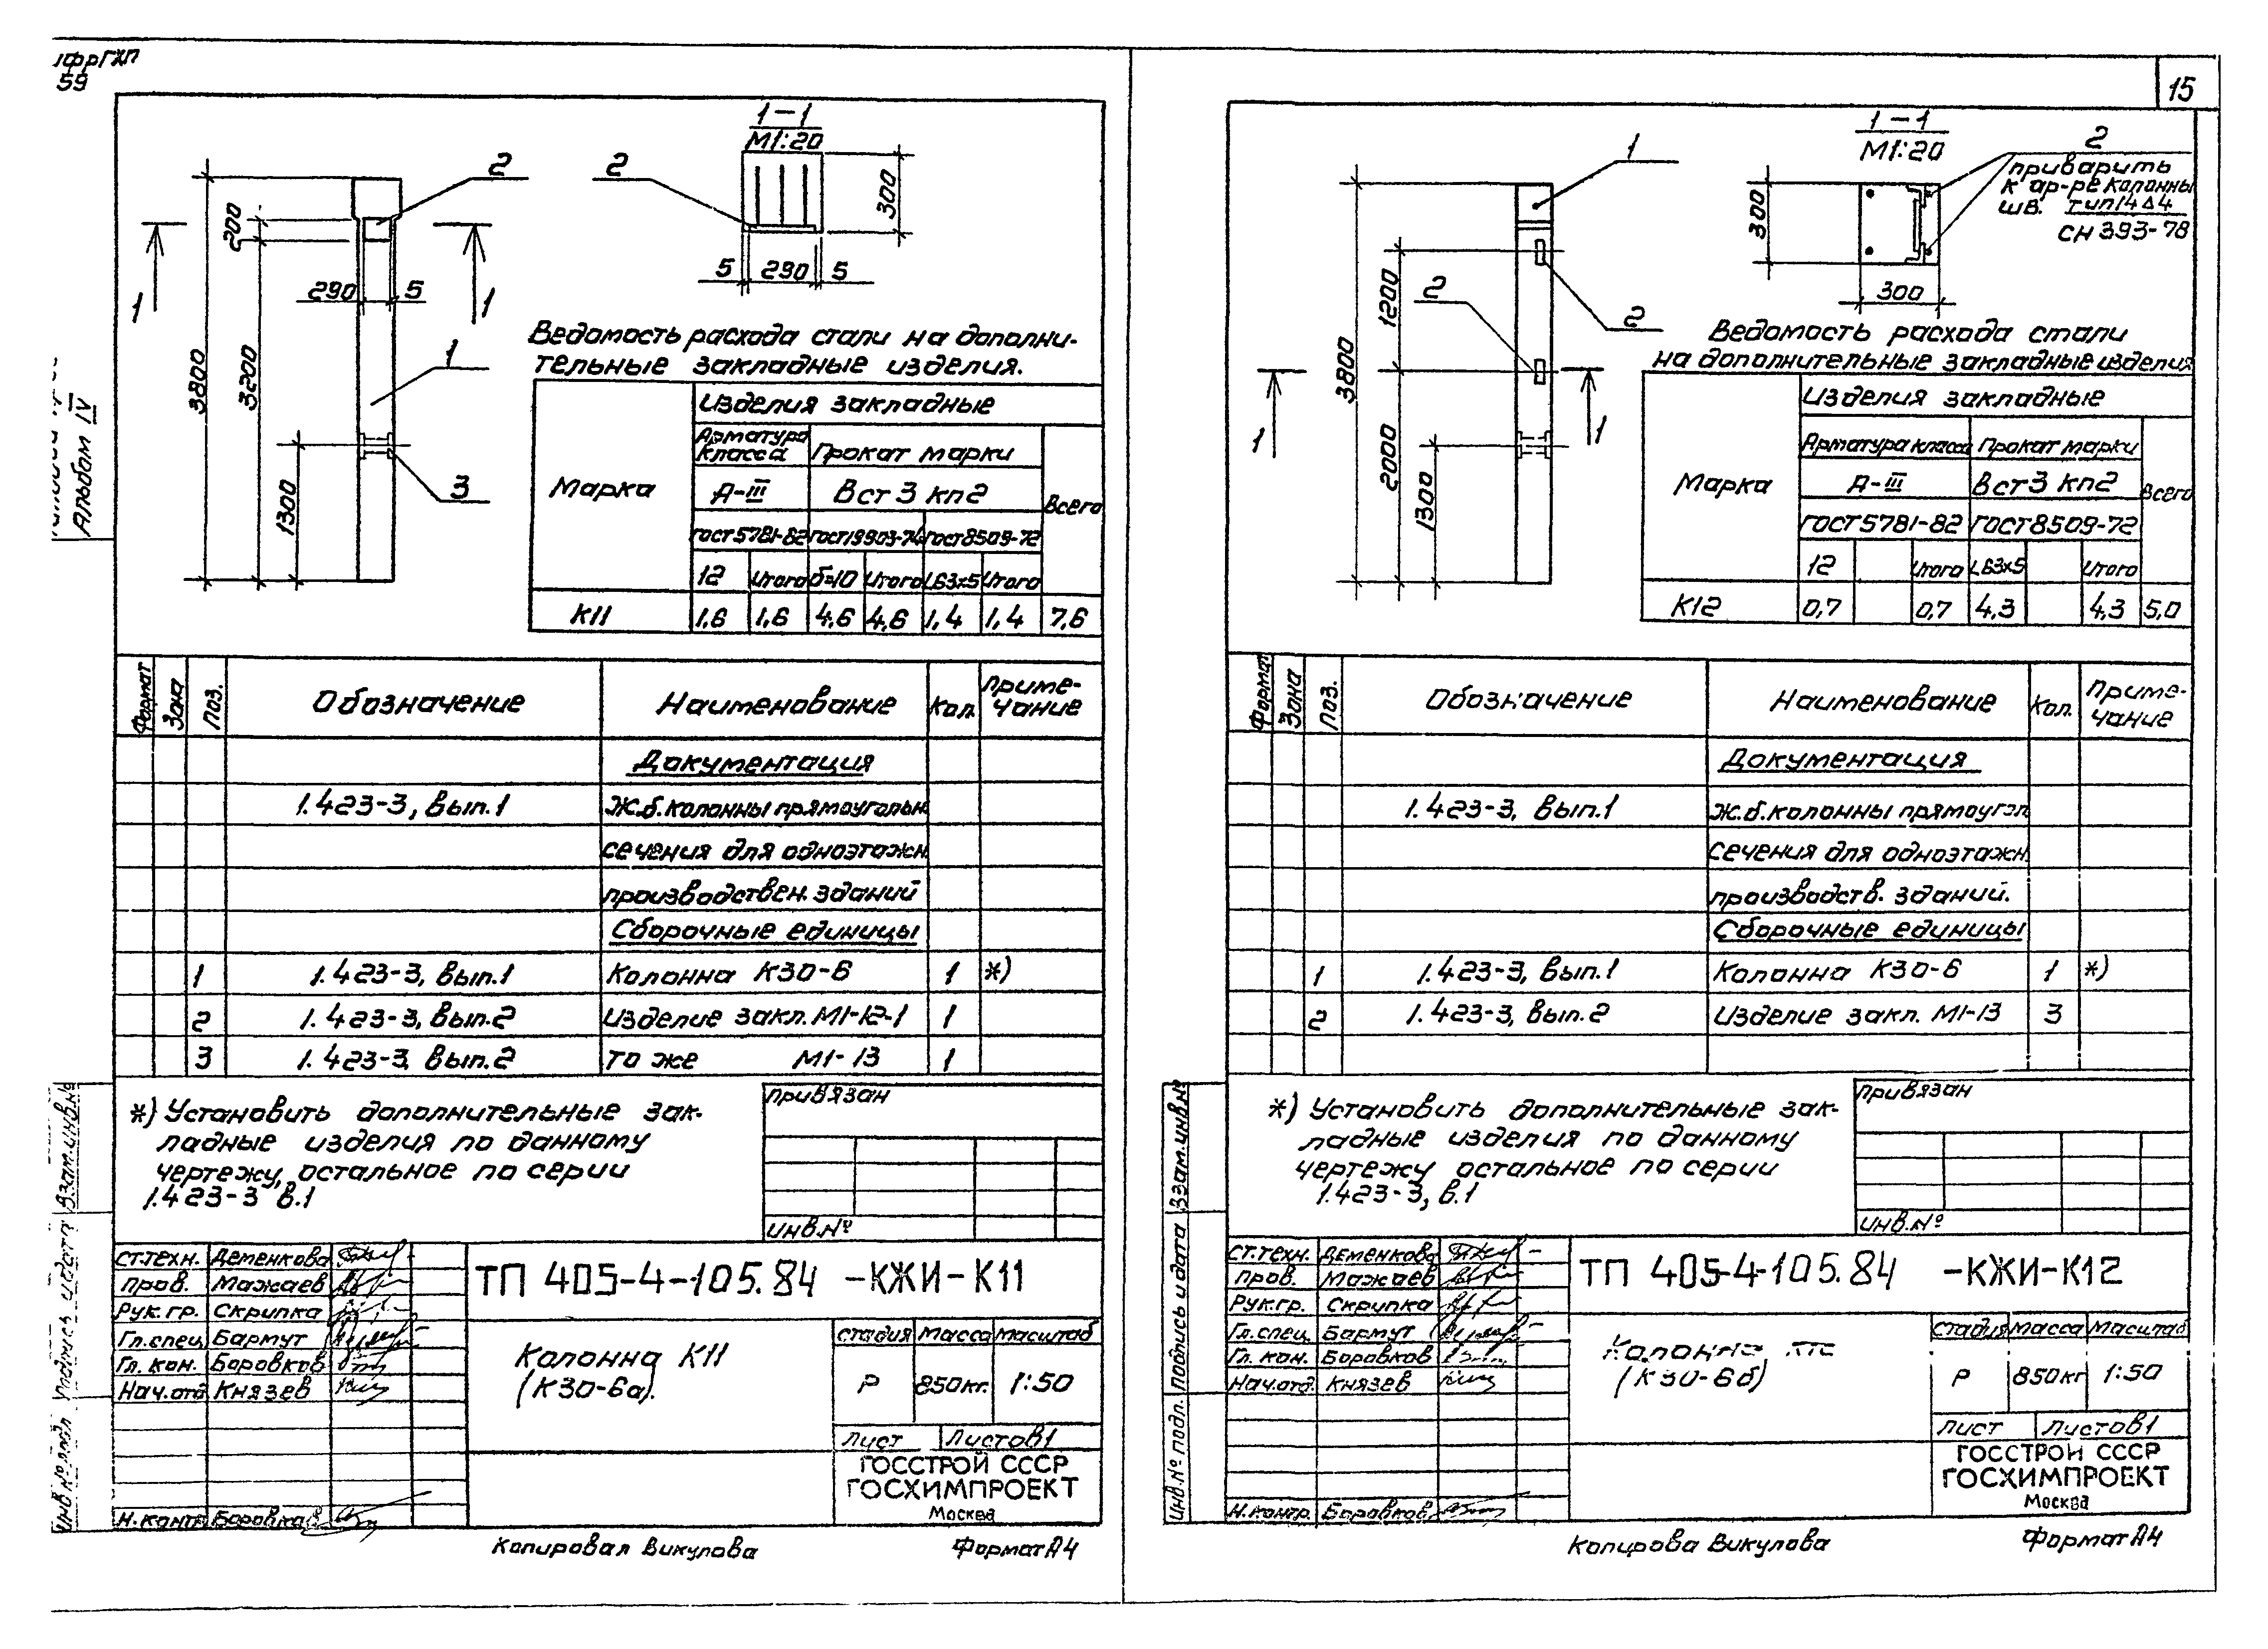 59
15
Альбом IV
1-1
М1:20
2
2
300
200
1
1
290
5
5
290
5
3800
3200
1
3
1300
Ведомость расхода стали на дополни-
тельные закладные изделия.
Марка
Изделия закладные
Арматура класса
Прокат марки
Всего
А-III
Вст 3 кп2
ГОСТ 5781-82
ГОСТ 19903-74
ГОСТ 8509-72
12
Итого
δ=10
Итого
L63х5
Итого
К11
1,6
1,6
4,6
4,6
1,4
1,4
7,6
Формат
Зона
Поз.
Обозначение
Наименование
Кол.
Приме-
чание
Документация
1.423-3, вып.1
Ж.б.колонны прямоугольн.
сечения для одноэтажн.
производствен. зданий
Сборочные единицы
1
1.423-3, вып.1
Колонна К30-6
1
*)
2
1.423-3, вып.2
Изделие закл. М1-12-1
1
3
1.423-3, вып.2
То же М1-13
1
*) Установить дополнительные зак-
ладные изделия по данному
чертежу, остальное по серии
1.423-3 в.1
Привязан
Инв.№
Взам.инв.№
Инв.№ подл
Ст.техн.
Деменкова
Пров.
Мажаев
Рук.гр.
Скрипка
Гл.спец.
Бармут
Гл.кон.
Боровков
Нач.отд
Князев
Н.контр
Боровков
ТП 405-4-105.84 -КЖИ-К11
Колонна К11
(К30-6а).
Стадия
Масса
Масштаб
Р
850кг.
1:50
Лист
Листов 1
ГОССТРОЙ СССР
ГОСХИМПРОЕКТ
Москва
Копировал Викулова
Формат А4
1-1
М1:20
1
2
приварить
к ар-ре колонны
шв. тип 14 Δ4
СН 393-78
300
300
1200
2
2
3800
2000
1300
1
1
Ведомость расхода стали
на дополнительные закладные изделия
Марка
Изделия закладные
Арматура класса
Прокат марки
Всего
А-III
Вст 3 кп2
ГОСТ 5781-82
ГОСТ 8509-72
12
Итого
L63х5
Итого
К12
0,7
0,7
4,3
4,3
5,0
Формат
Зона
Поз.
Обозначение
Наименование
Кол.
Приме-
чание
Документация
1.423-3, вып.1
Ж.б.колонны прямоугол
сечения для одноэтажн.
производств. зданий.
Сборочные единицы
1
1.423-3, вып.1
Колонна К30-6
1
*)
2
1.423-3, вып.2
Изделие закл. М1-13
3
*) Установить дополнительные зак-
ладные изделия по данному
чертежу остальное по серии
1.423-3, в.1
Привязан
Инв.№
Взам.инв.№
Подпись и дата
Инв.№ подл.
Ст.техн.
Деменкова
Пров.
Мажаев
Рук.гр.
Скрипка
Гл.спец.
Бармут
Гл.кон.
Боровков
Нач.отд.
Князев
Н.контр.
Боровков
ТП 405-4-105.84 -КЖИ-К12
Колонна
(К30-6б)
Стадия
Масса
Масштаб
Р
850кг
1:50
Лист
Листов 1
ГОССТРОЙ СССР
ГОСХИМПРОЕКТ
Москва
Копирова Викулова
Формат А4